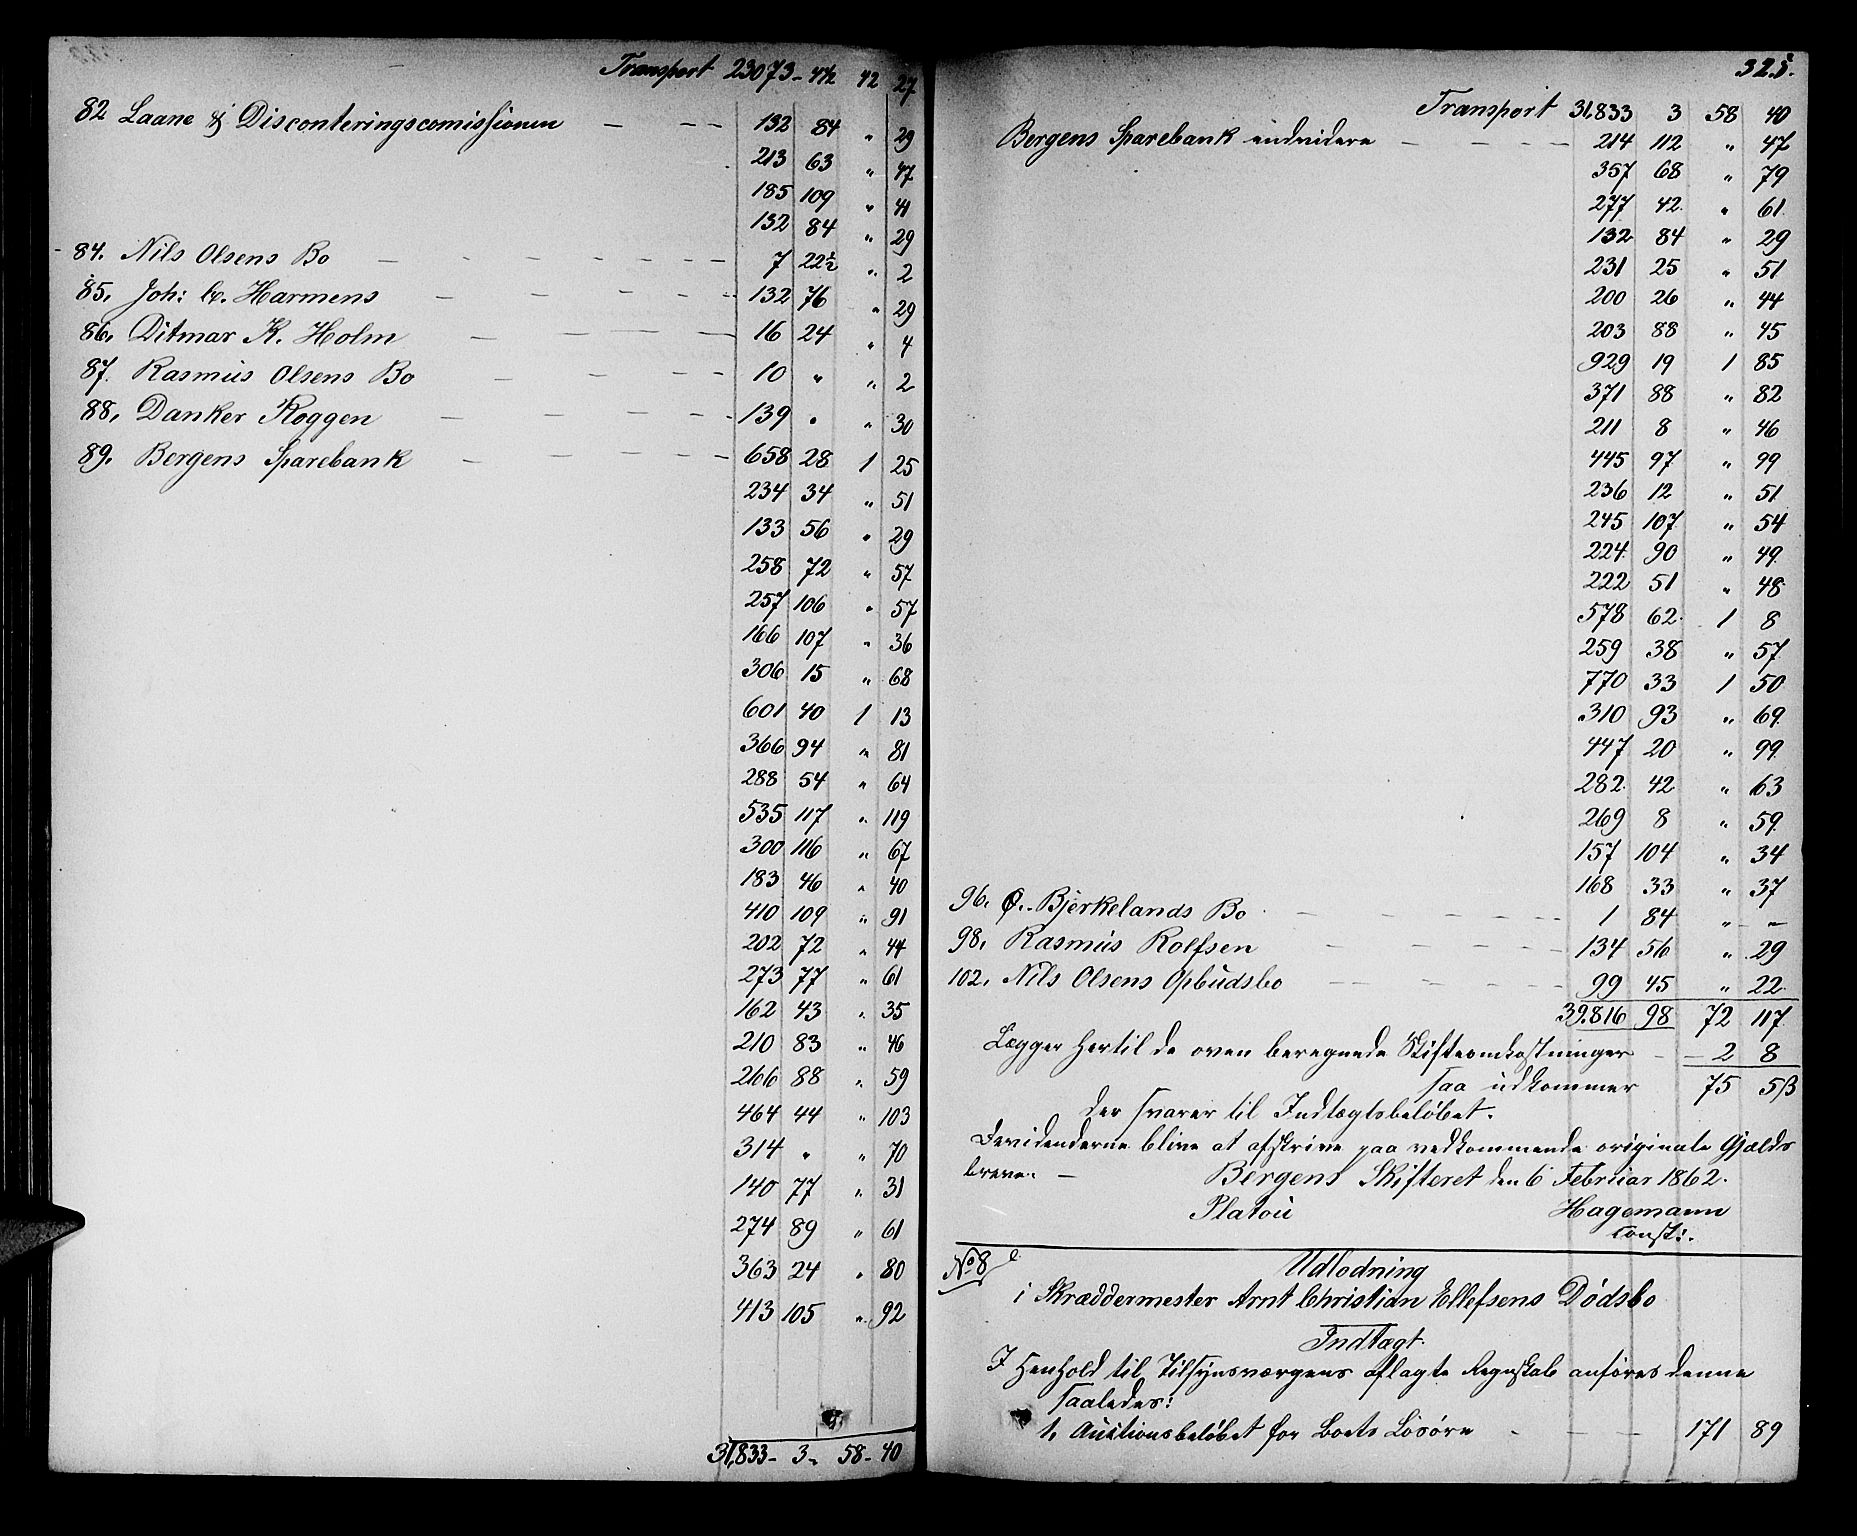 Transport 23073 - 4½ 42 27
82 Laane & Disconteringscomissionen — — — 132 84 " 29
213 63 " 47
185 109 " 41
132 84 " 29
84. Nils Olsens Bo — — — 7 22½ " 2
85. Joh: C. Harmens — — — 132 76 " 29
86. Ditmar K. Holm — — — 16 24 " 4
87. Rasmus Olsens Bo — — — 10 " " 2
88. Danker Roggen — — — 139 " " 30
89. Bergens Sparebank — — — 658 28 1 25
234 34 " 51
133 56 " 29
258 72 " 57
257 106 " 57
166 107 " 36
306 15 " 68
601 40 1 13
366 94 " 81
288 54 " 64
535 117 " 119
300 116 " 67
183 46 " 40
410 109 " 91
202 72 " 44
273 77 " 61
162 43 " 35
210 83 " 46
266 88 " 59
464 44 " 103
314 " " 70
140 77 " 31
274 89 " 61
363 24 " 80
413 105 " 92
31,833 - 3 - 58 - 40
325.
Transport 31,833 3 58 40
Bergens Sparebank endvidere — — — 214 112 " 47
357 68 " 79
277 42 " 61
132 84 " 29
231 25 " 51
200 26 " 44
203 88 " 45
929 19 1 85
371 88 " 82
211 8 " 46
445 97 " 99
236 12 " 51
245 107 " 54
224 90 " 49
222 51 " 48
578 62 1 8
259 38 " 57
770 33 1 50
310 93 " 69
447 20 " 99
282 42 " 63
269 8 " 59
157 104 " 34
168 33 " 37
96. O. Bjerkelands Bo — — — 1 84 " —
98. Rasmus Rolfsen — — — 134 56 " 29
102. Nils Olsens Opbudsbo — — — 99 45 " 22
39.816 98 72 117
Lægges hertil de oven beregnede Skifteomkostninger — 2 8
saa udkommer 75 5 ß
der svarer til Indtægtsbeløbet.
Devidenderne blive at afskrive paa vedkommende originale Gjelds
breve. — Bergens Skifteret den 6 Februar 1862.
Platou Hagemann
const:.
No 8
Udlodning
i Skræddermester Arnt Christian Ellefsens Dødsbo
Indtægt.
I Henhold til Tilsynsværgens aflagte Regnskab anføres denne
saaledes:
1. Auctionsbeløbet for Boets Løsøre — — — 171 89